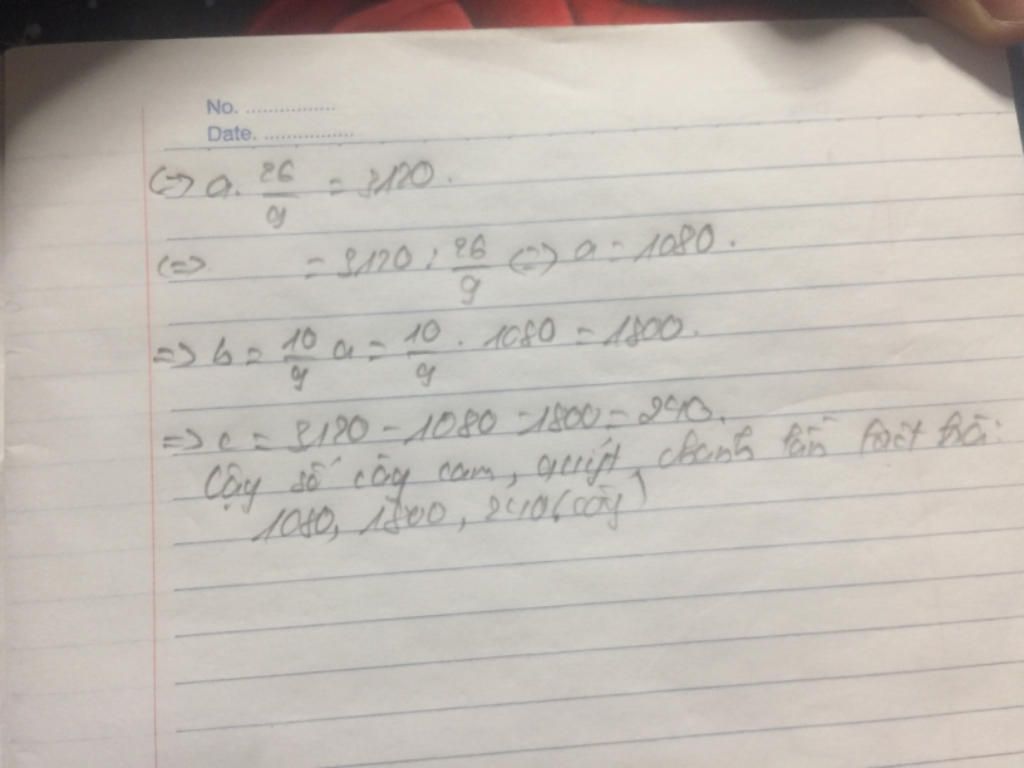 No. ................
Date. ................
<=> a. 26/9 = 3120.
<=> = 3120 : 26/9 <=> a = 1080.
=> b = 10/9 a = 10/9 . 1080 = 1800.
=> c = 3120 - 1080 - 1800 = 240.
Vậy số cây cam, quýt, chanh lần lượt là:
1080, 1800, 240 (cây)